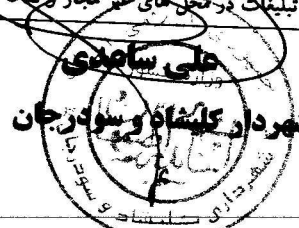 تبلیغات در محل های غیر مجاز و
علی ساعدی
شهردار کلیشاد و سودرجان
شهرداری کلیشاد و سودرجان